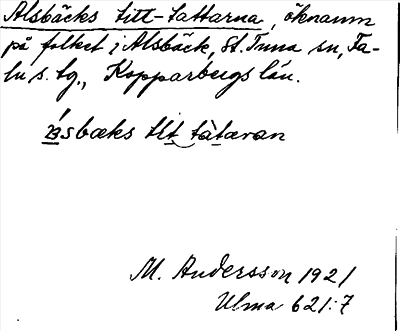 Alsbäcks titt-tattarna, öknamn
på folket i Alsbäck, St. Tuna sn, Fa-
lu s. tg., Kopparbergs län.
ásbæks tit tàtaran
M. Andersson 1921
Ulma 621:7